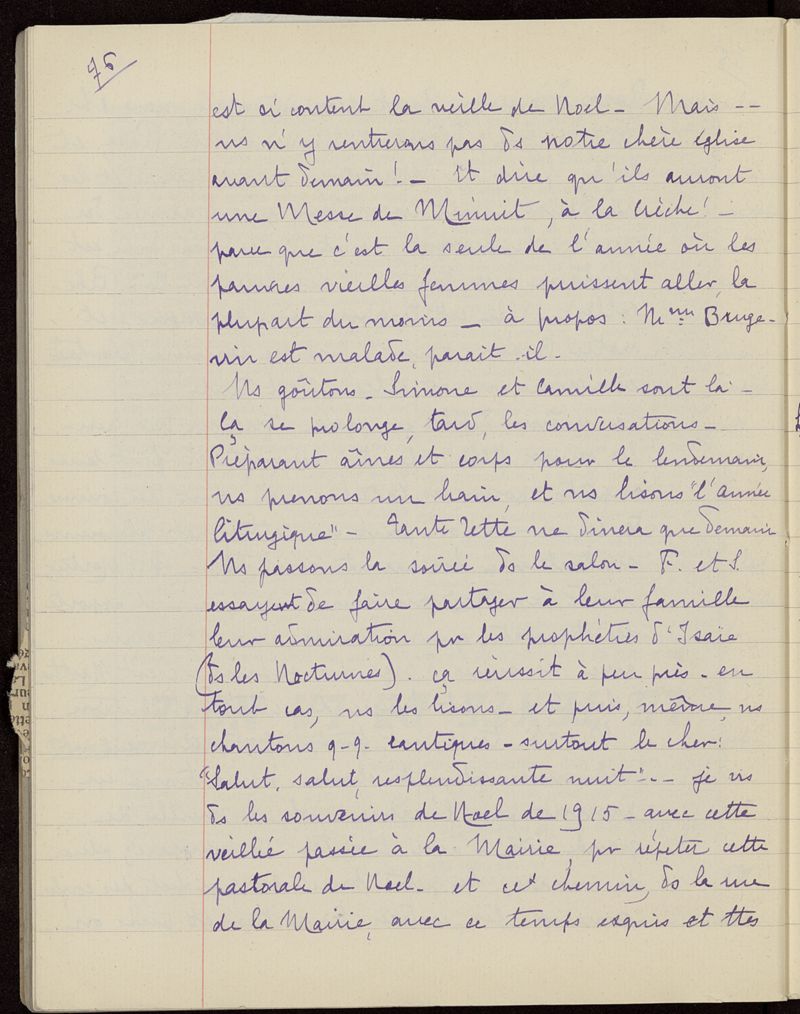 76
est si content la veille de Noel - Mais --
ns n'y rentrerons pas ds notre chère église
avant demain! - Et dire qu'ils auront
une Messe de Minuit, à la Crèche! -
parce que c'est la seule de l'année où les
pauvres vieilles femmes puissent aller, la
plupart du moins - à propos : Mme Bruge-
vin est malade, parait-il -
Ns goûtons - Simone et Camille sont là -
ça se prolonge, tard, les conversations -
Préparant âmes et corps pour le lendemain,
ns prenons un bain, et ns lisons "l'année
liturgique" - Tante Zette ne dinera que demain.
Ns passons la soirée ds le salon - F. et S.
essayent de faire partager à leur famille
leur admiration pr les prophéties d'Isaïe
(ds les Nocturnes). ça réussit à peu près - en
tout cas, ns les lisons - et puis, même, ns
chantons q-q- cantiques - surtout le cher:
"Salut, salut, resplendissante nuit" -- je vis
ds les souvenirs de Noel de 1915 - avec cette
veillée passée à la Mairie, pr répéter cette
pastorale de Noel - et cet chemin, ds la rue
de la Mairie, avec ce temps exquis et ttes